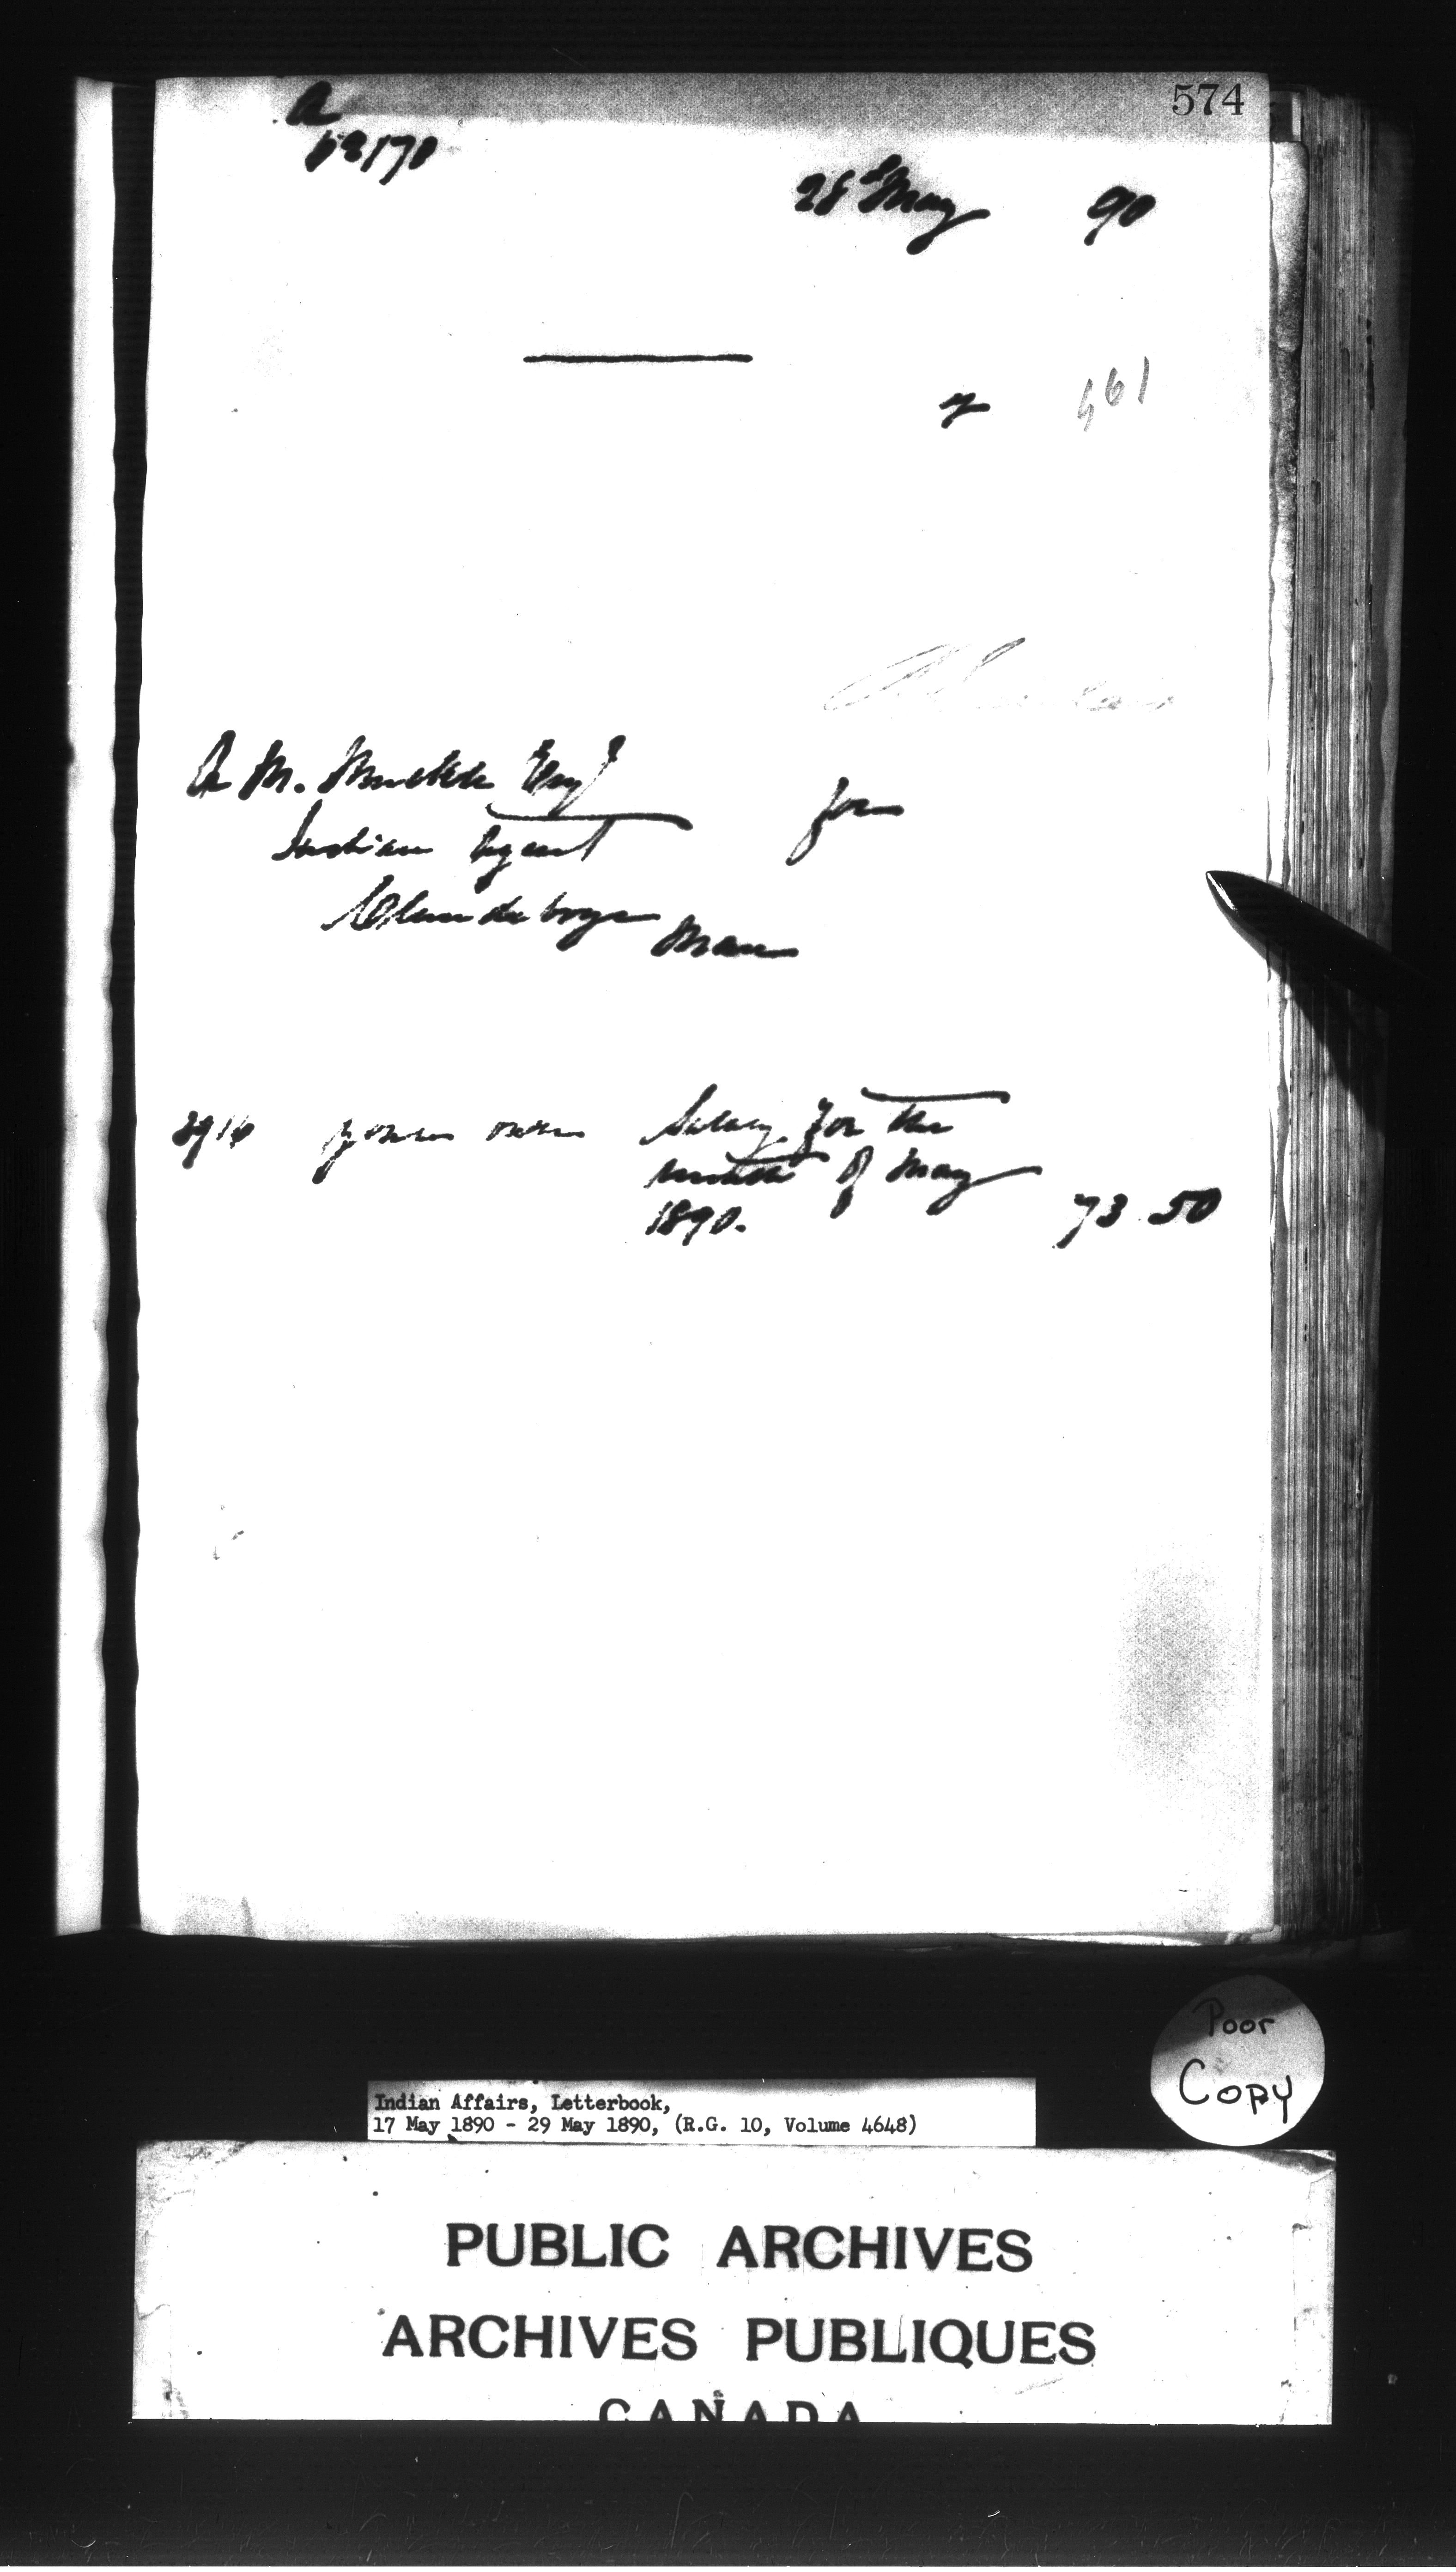 574
A
28 May 90
y 461
A M. Esqr
Indian Agent for
Clandeboye
Man
2916 Yours own Salary for the
month of May
1890. 73 50
Poor
Copy
Indian Affairs, Letterbook,
17 May 1890 - 29 May 1890, (R.G. 10, Volume 4648)
PUBLIC ARCHIVES
ARCHIVES PUBLIQUES
CANADA